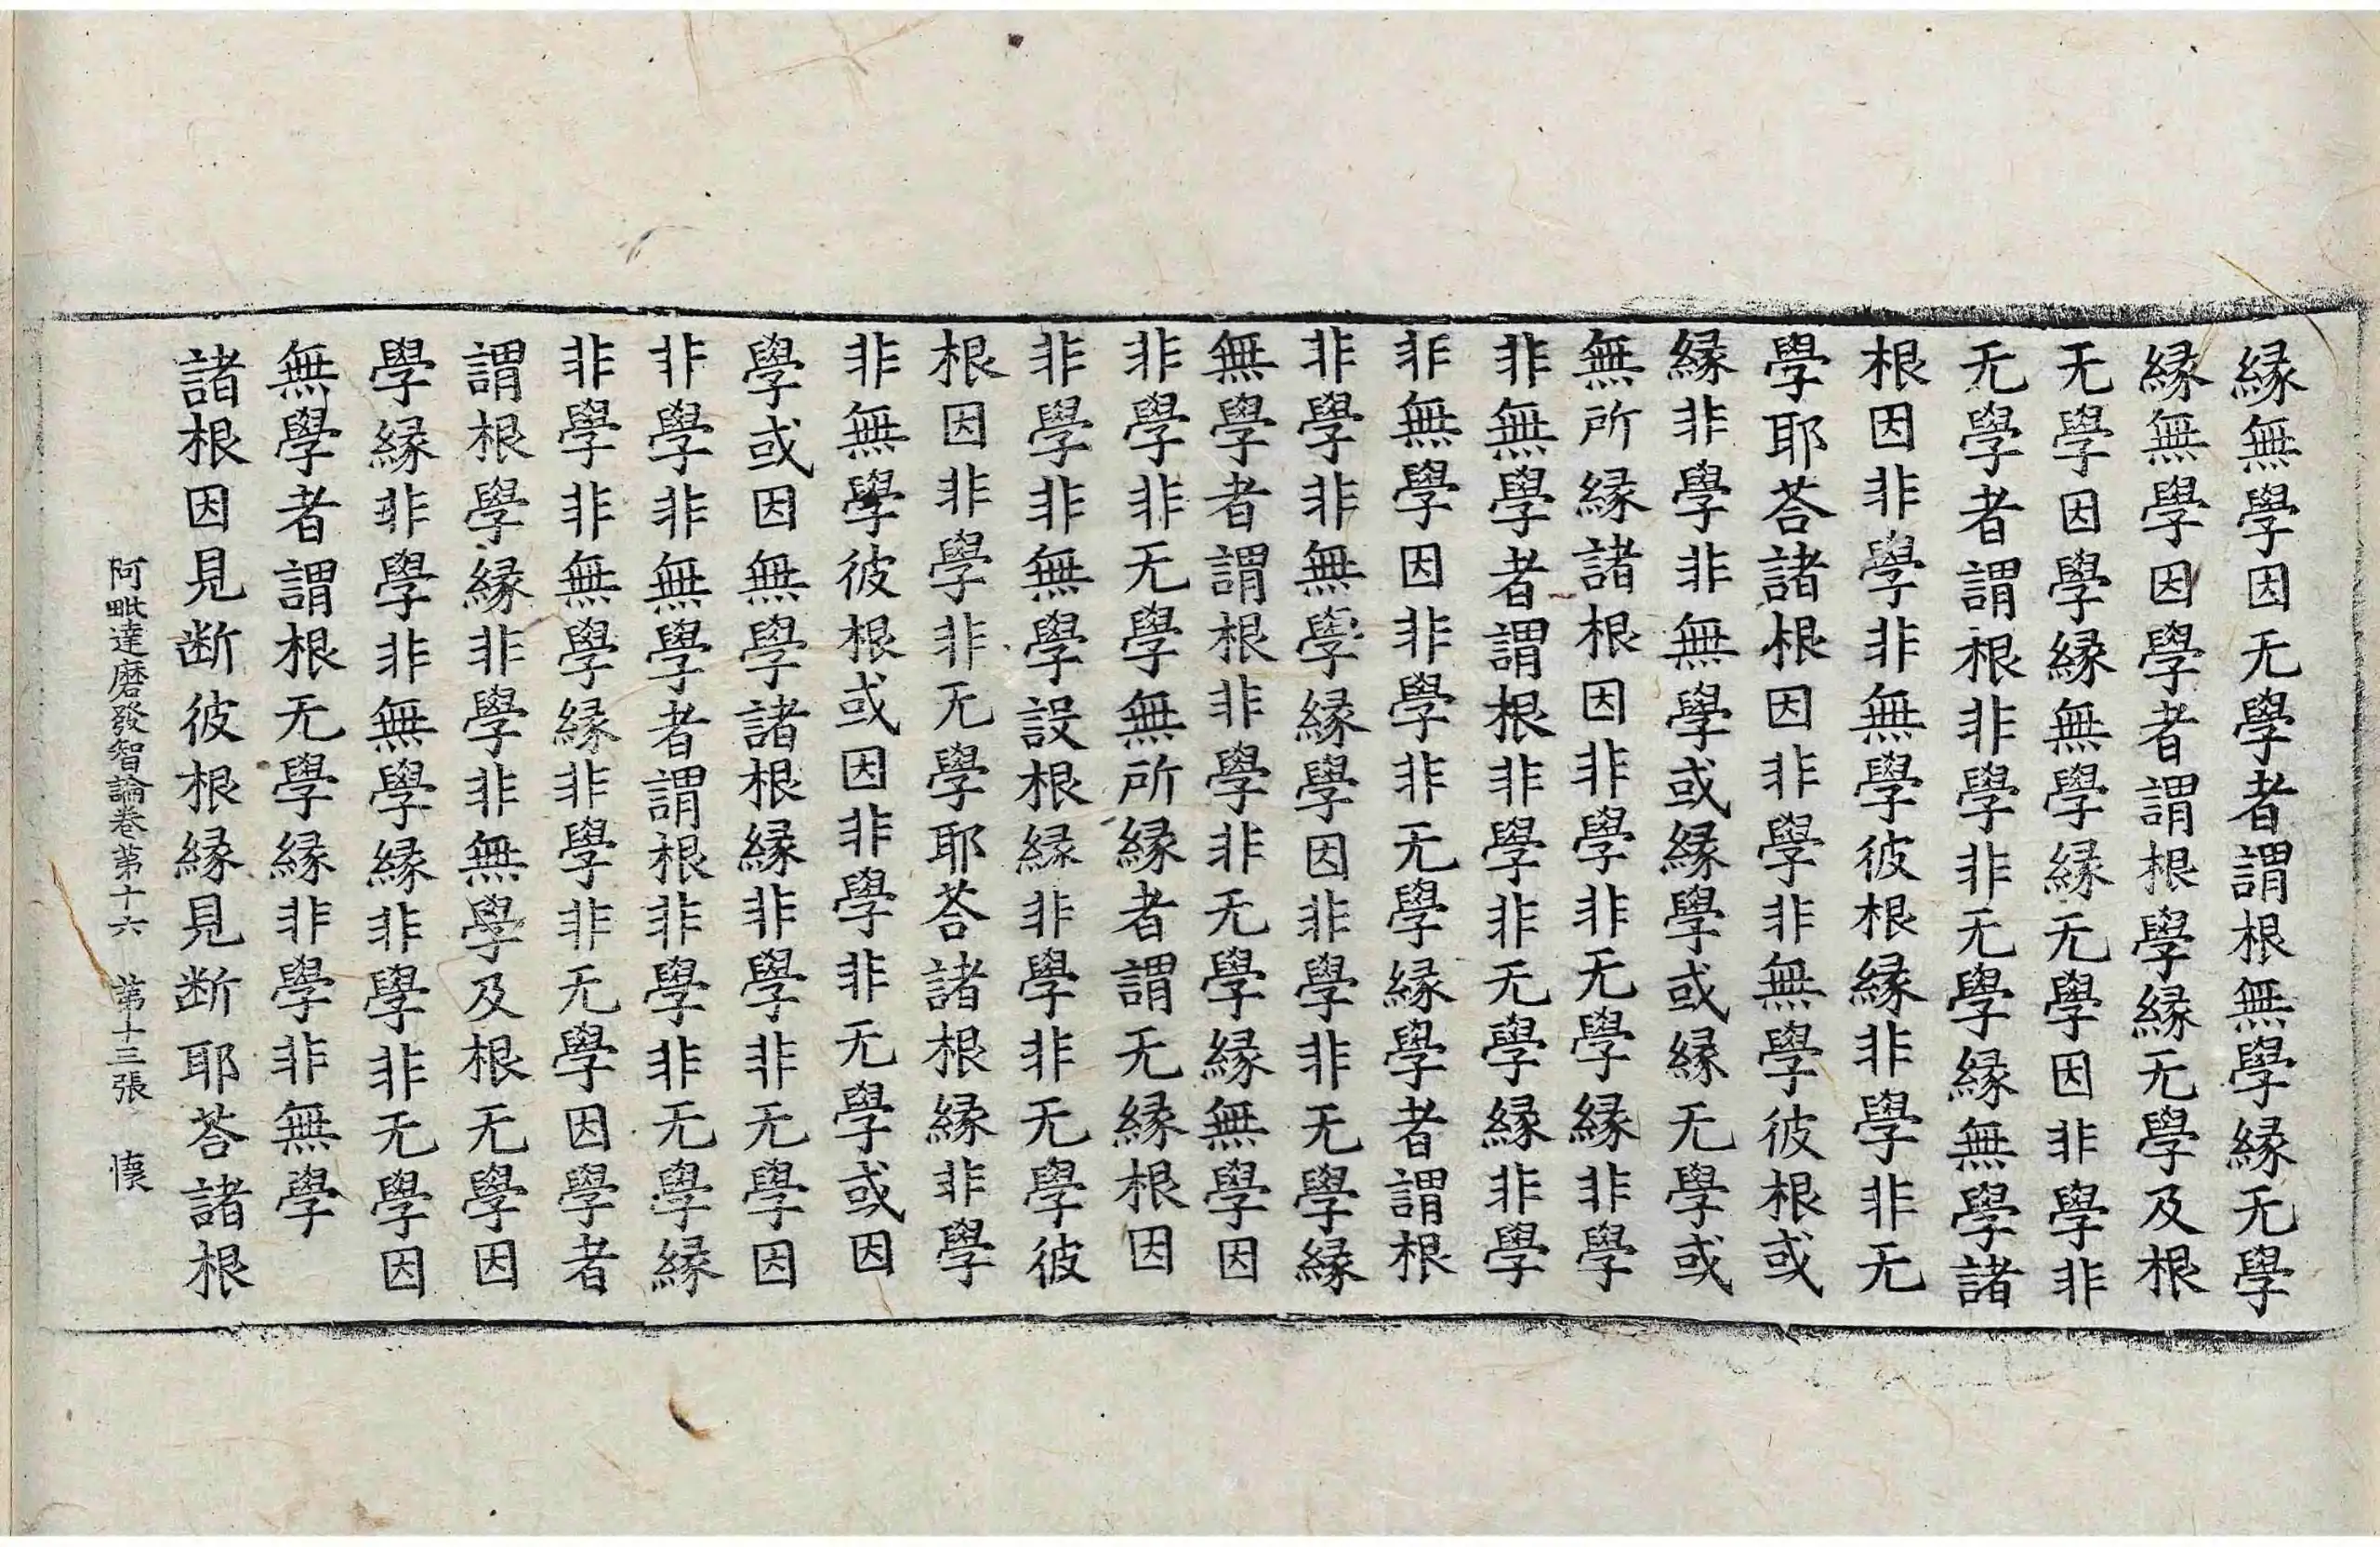 縁無學因无學者謂根無學縁无學
縁無學因學者謂根學縁无學及根
无學因學縁無學縁无學因非學非
无學者謂根非學非无學縁無學諸
根因非學非無學彼根縁非學非无
學耶荅諸根因非學非無學彼根或
縁非學非無學或縁學或縁无學或
無所縁諸根因非學非无學縁非學
非無學者謂根非學非无學縁非學
非無學因非學非无學縁學者謂根
非學非無學縁學因非學非无學縁
無學者謂根非學非无學縁無學因
非學非无學無所縁者謂无縁根因
非學非無學設根縁非學非无學彼
根因非學非无學耶荅諸根縁非學
非無學彼根或因非學非无學或因
學或因無學諸根縁非學非无學因
非學非無學者謂根非學非无學縁
非學非無學縁非學非无學因學者
謂根學縁非學非無學及根无學因
學縁非學非無學縁非學非无學因
無學者謂根无學縁非學非無學
諸根因見断彼根縁見断耶荅諸根
阿毗達磨發智論卷第十六 第十三張 懐